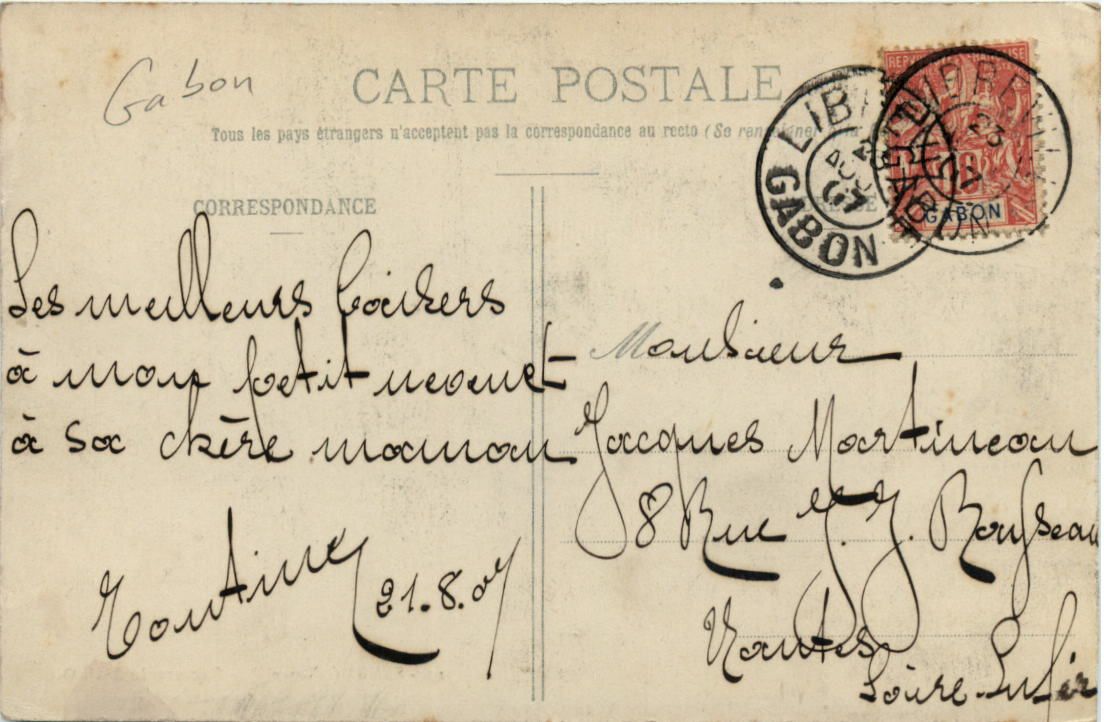 Gabon
CARTE POSTALE
Tous les pays étrangers n'acceptent pas la correspondance au recto (Se renseigner
LIBREVILLE
23
AOU
07
GABON
LIBREVILLE
23
GABON
10
GABON
CORRESPONDANCE
Les meilleurs baisers
à mon petit neveu et
à sa chère maman
21.8.07
Monsieur
Jacques Martineau
8 Rue J. J. Rousseau
Nantes
Loire Infér